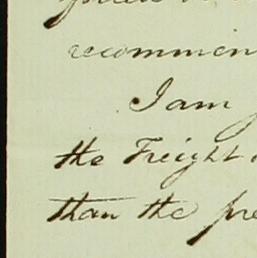 recommen
I am
the Freight
than the pre